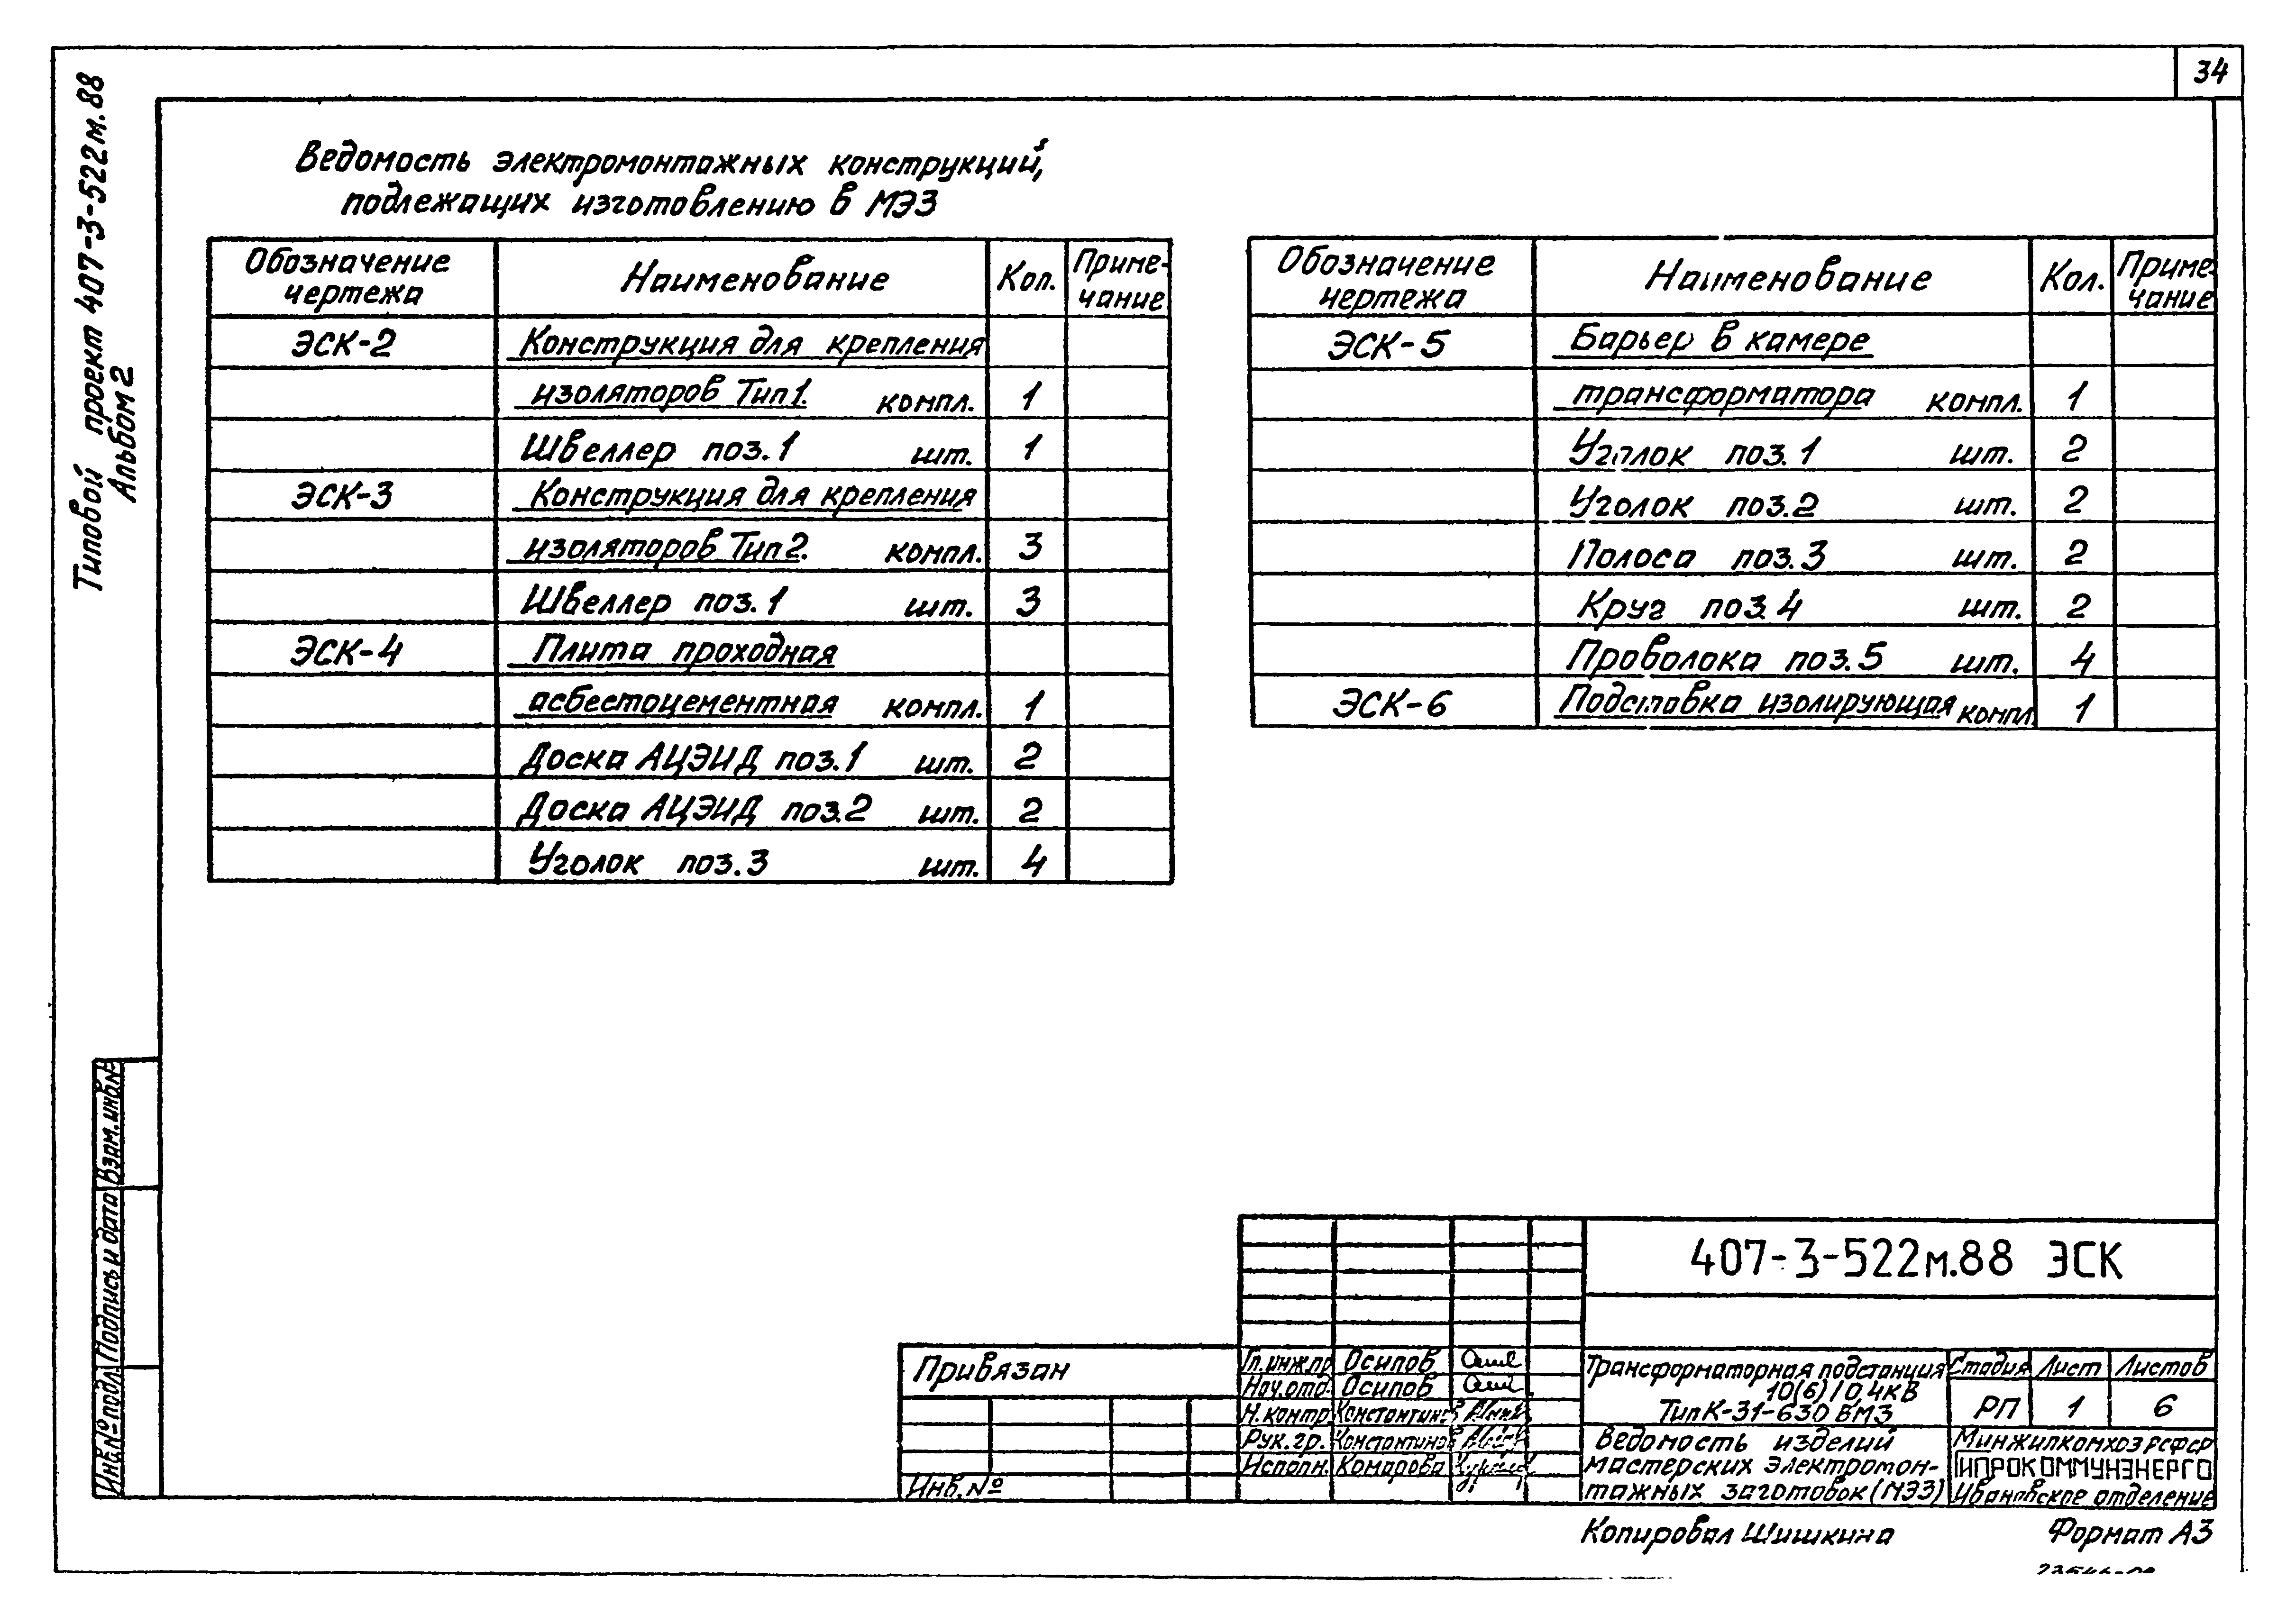 34
Типовой проект 407-3-522м.88
Альбом 2
Ведомость электромонтажных конструкций,
подлежащих изготовлению в МЭЗ
Обозначение чертежа Наименование Кол. Приме-чание
ЭСК-2 Конструкция для крепления
изоляторов Тип 1. компл. 1
Швеллер поз. 1 шт. 1
ЭСК-3 Конструкция для крепления
изоляторов Тип 2. компл. 3
Швеллер поз. 1 шт. 3
ЭСК-4 Плита проходная
асбестоцементная компл. 1
Доска АЦЭИД поз. 1 шт. 2
Доска АЦЭИД поз. 2 шт. 2
Уголок поз. 3 шт. 4
Обозначение чертежа Наименование Кол. Приме-чание
ЭСК-5 Барьер в камере
трансформатора компл. 1
Уголок поз. 1 шт. 2
Уголок поз. 2 шт. 2
Полоса поз. 3 шт. 2
Круг поз. 4 шт. 2
Проволока поз. 5 шт. 4
ЭСК-6 Подставка изолирующая компл. 1
Взам. инв.№
Подпись и дата
Инв.№ подл.
407-3-522м.88 ЭСК
Привязан
Инв.№
Гл.инж.пр Осипов
Нач.отд. Осипов
Н.контр. Константинов
Рук.гр. Константинов
Исполн. Комарова
Трансформаторная подстанция
10(6)/0,4кВ
Тип К-31-630 ВМЗ
Стадия Лист Листов
РП 1 6
Ведомость изделий
мастерских электромон-
тажных заготовок (МЭЗ)
Минжилкомхоз РСФСР
ГИПРОКОММУНЭНЕРГО
Ивановское отделение
Копировал Шишкина Формат А3